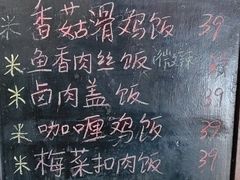 米 香菇滑鸡饭 39
米 鱼香肉丝饭 微辣
米 卤肉盖饭
米 咖喱鸡饭 39
米 梅菜扣肉饭 39